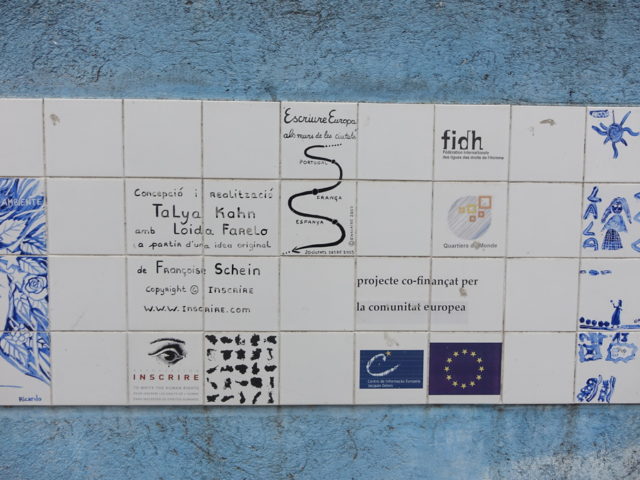 Escriure Europa
als murs de les ciutats
PORTUGAL
FRANÇA
ESPANYA
fidh
Fédération Internationale
des ligues des droits de l'Homme
AMBIENTE
Concepció i realització
Talya Kahn
amb Loïda Farelo
(a partir d'una idea original
de Françoise Schein
Copyright © INSCRIRE
www.INSCRIRE.com
Quartiers du Monde
projecte co-finançat per
la comunitat europea
INSCRIRE
TO WRITE THE HUMAN RIGHTS
Centre de Informação Europeia
Jacques Delors
Ricardo